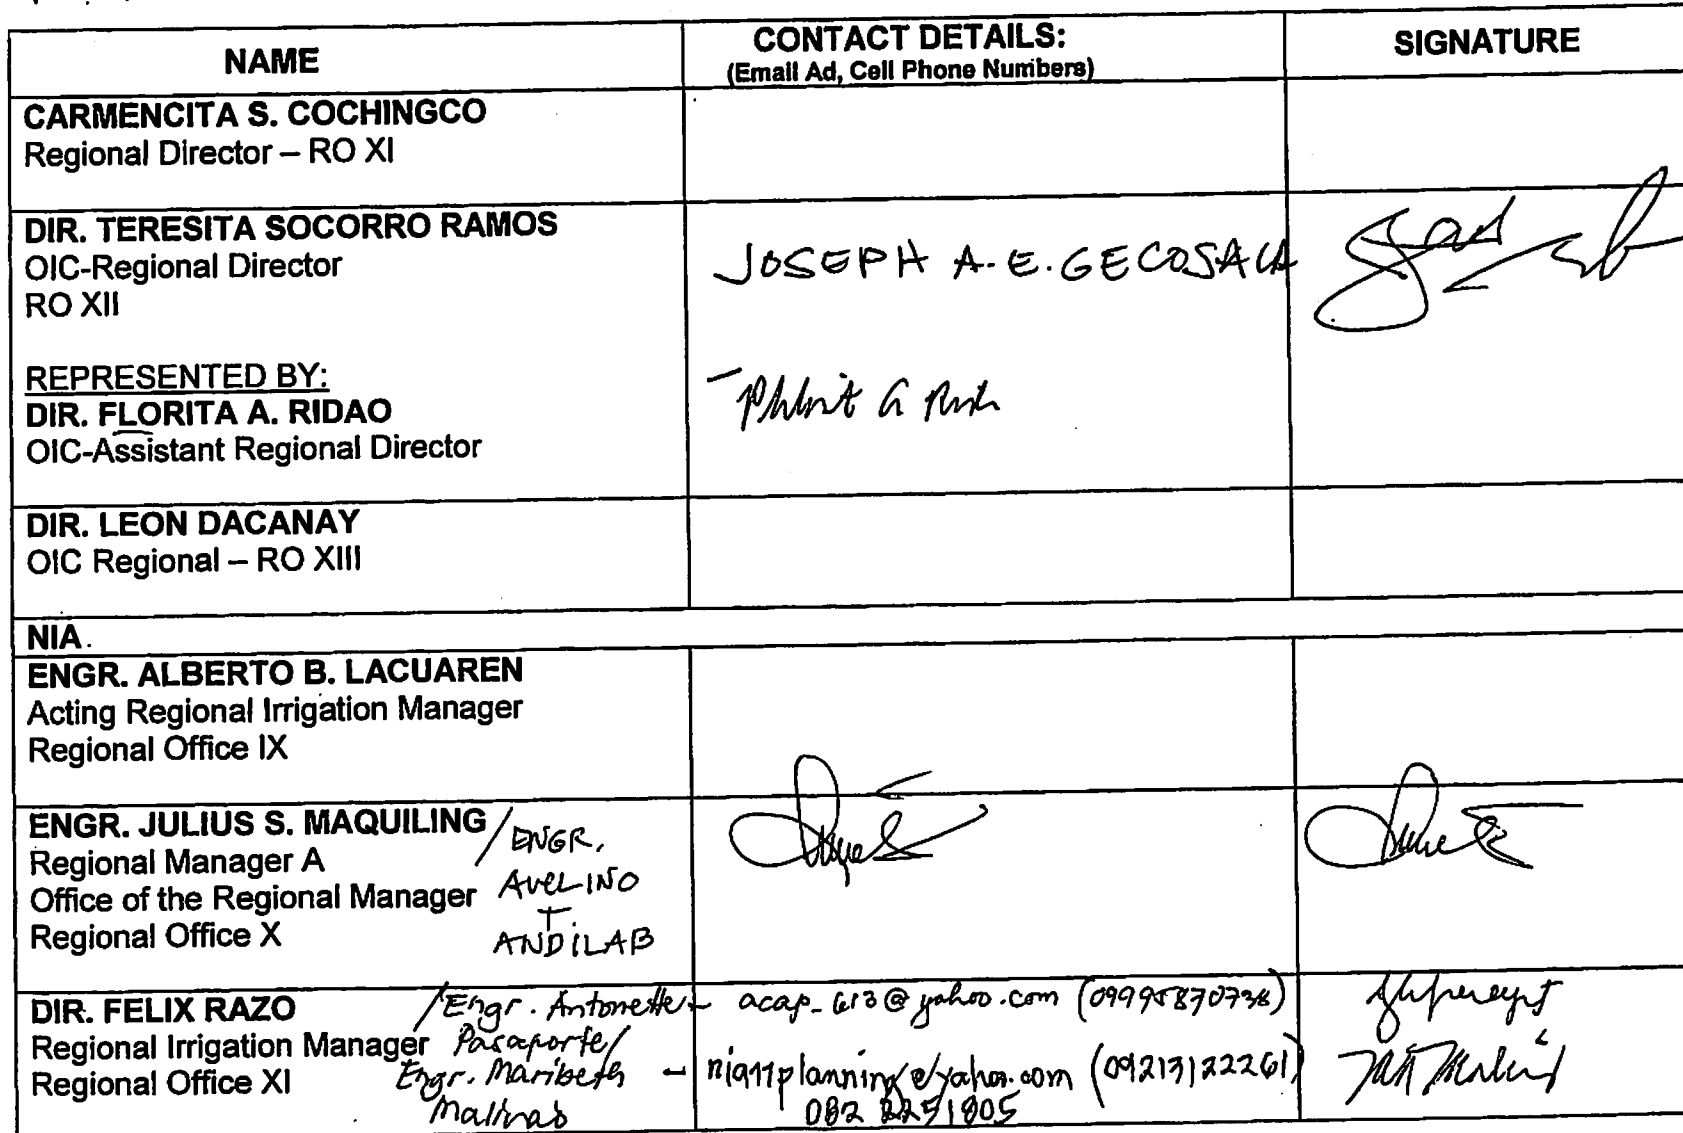 NAME
CONTACT DETAILS:
(Email Ad, Cell Phone Numbers)
SIGNATURE
CARMENCITA S. COCHINGCO
Regional Director – RO XI
DIR. TERESITA SOCORRO RAMOS
OIC-Regional Director
RO XII
JOSEPH A. E. GECOSALA
REPRESENTED BY:
DIR. FLORITA A. RIDAO
OIC-Assistant Regional Director
DIR. LEON DACANAY
OIC Regional – RO XIII
NIA.
ENGR. ALBERTO B. LACUAREN
Acting Regional Irrigation Manager
Regional Office IX
ENGR. JULIUS S. MAQUILING
Regional Manager A
Office of the Regional Manager
Regional Office X
/ENGR.
AVELINO
T
ANDILAB
DIR. FELIX RAZO
Regional Irrigation Manager
Regional Office XI
/Engr. Antonette
Pasaporte/
Engr. Maribeth
Malinao
- acap_613@yahoo.com (09995870738)
- nia11planning@yahoo.com (09213122261)
082 2251805